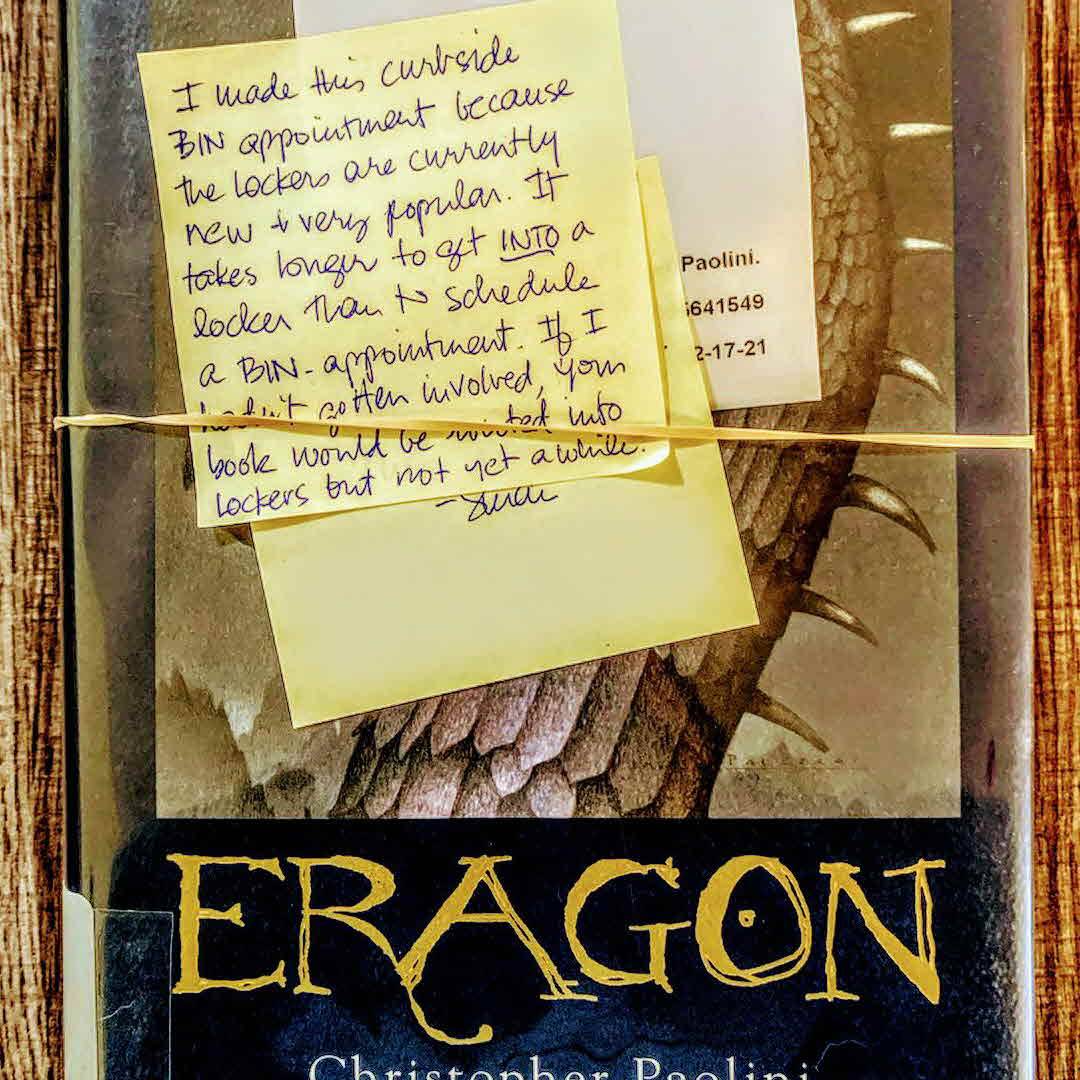 I made this curbside
BIN appointment because
the lockers are currently
new + very popular. It
takes longer to get INTO a
locker than to schedule
a BIN-appointment. If I
hadn't gotten involved, your
book would be routed into
lockers but not yet awhile.
Paolini.
641549
2-17-21
ERAGON
Christopher Paolini